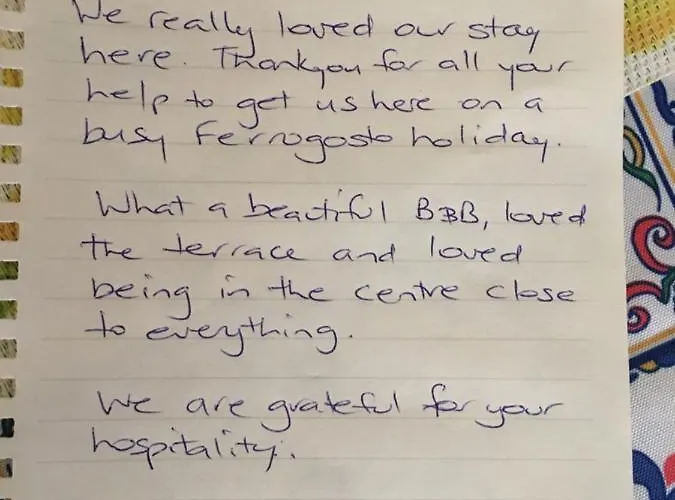 We really loved our stay
here. Thankyou for all your
help to get us here on a
busy Ferrogosto holiday.
What a beautiful B&B, loved
the terrace and loved
being in the centre close
to everything.
We are grateful for your
hospitality.